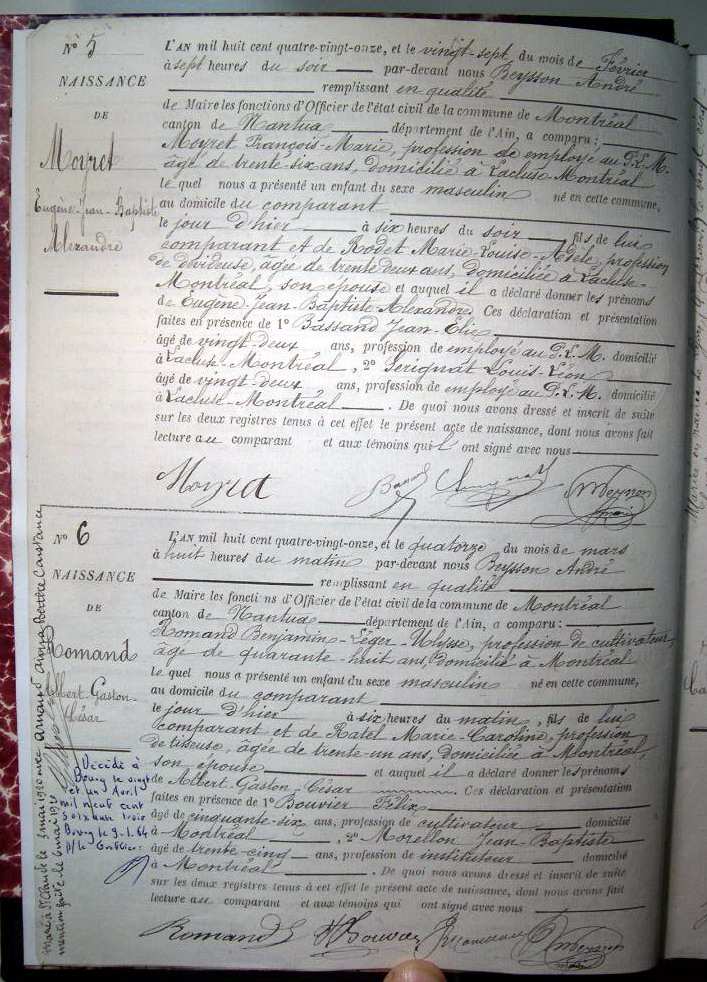 N° 5
NAISSANCE
DE
Moyret
Eugène-Jean-Baptiste
Alexandre
L'AN mil huit cent quatre-vingt-onze, et le vingt-sept du mois de Février
à sept heures du soir par-devant nous Beysson André
remplissant en qualité
de Maire les fonctions d'Officier de l'état civil de la commune de Montréal
canton de Nantua département de l'Ain, a comparu :
Moyret François-Marie, profession de employé au P.L.M.
âgé de trente-six ans, domicilié à Lacluse-Montréal
le quel nous a présenté un enfant du sexe masculin né en cette commune,
au domicile du comparant
le jour d'hier à six heures du soir, fils de lui
comparant et de Rodet Marie-Louise-Adèle, profession
de dévideuse, âgée de trente deux ans, domiciliée à Lacluse-
Montréal, son épouse et auquel il a déclaré donner les prénoms
de Eugène-Jean-Baptiste-Alexandre. Ces déclaration et présentation
faites en présence de 1° Bassand Jean-Elie
âgé de vingt-deux ans, profession de employé au P.L.M. domicilié
à Lacluse-Montréal, 2° Sérignat Louis-Léon
âgé de vingt-deux ans, profession de employé au P.L.M. domicilié
à Lacluse-Montréal. De quoi nous avons dressé et inscrit de suite
sur les deux registres tenus à cet effet le présent acte de naissance, dont nous avons fait
lecture au comparant et aux témoins qui ont signé avec nous
Moyret
N° 6
NAISSANCE
DE
Romand
Albert-Gaston-
César
L'AN mil huit cent quatre-vingt-onze, et le quatorze du mois de mars
à huit heures du matin par-devant nous Beysson André
remplissant en qualité
de Maire les fonctions d'Officier de l'état civil de la commune de Montréal
canton de Nantua département de l'Ain, a comparu :
Romand Benjamin-Léger-Ulysse, profession de cultivateur,
âgé de quarante-huit ans, domicilié à Montréal
le quel nous a présenté un enfant du sexe masculin né en cette commune,
au domicile du comparant
le jour d'hier à six heures du matin, fils de lui
comparant et de Ratel Marie-Caroline, profession
de tisseuse, âgée de trente-un ans, domiciliée à Montréal,
son épouse et auquel il a déclaré donner les prénoms
de Albert-Gaston-César. Ces déclaration et présentation
faites en présence de 1° Bouvier Félix
âgé de cinquante-six ans, profession de cultivateur domicilié
à Montréal, 2° Morellon Jean-Baptiste
âgé de trente-cinq ans, profession de instituteur domicilié
à Montréal. De quoi nous avons dressé et inscrit de suite
sur les deux registres tenus à cet effet le présent acte de naissance, dont nous avons fait
lecture au comparant et aux témoins qui ont signé avec nous
Romand
Marié à St Claude le 1 mai 1920 avec Amand Anna Berthe Constance
mention faite le 6 mai 1920
Décédé à
Bourg le vingt
et un Avril
mil neuf cent
soixante trois
Bourg le 9.1.64
P/le Greffier: